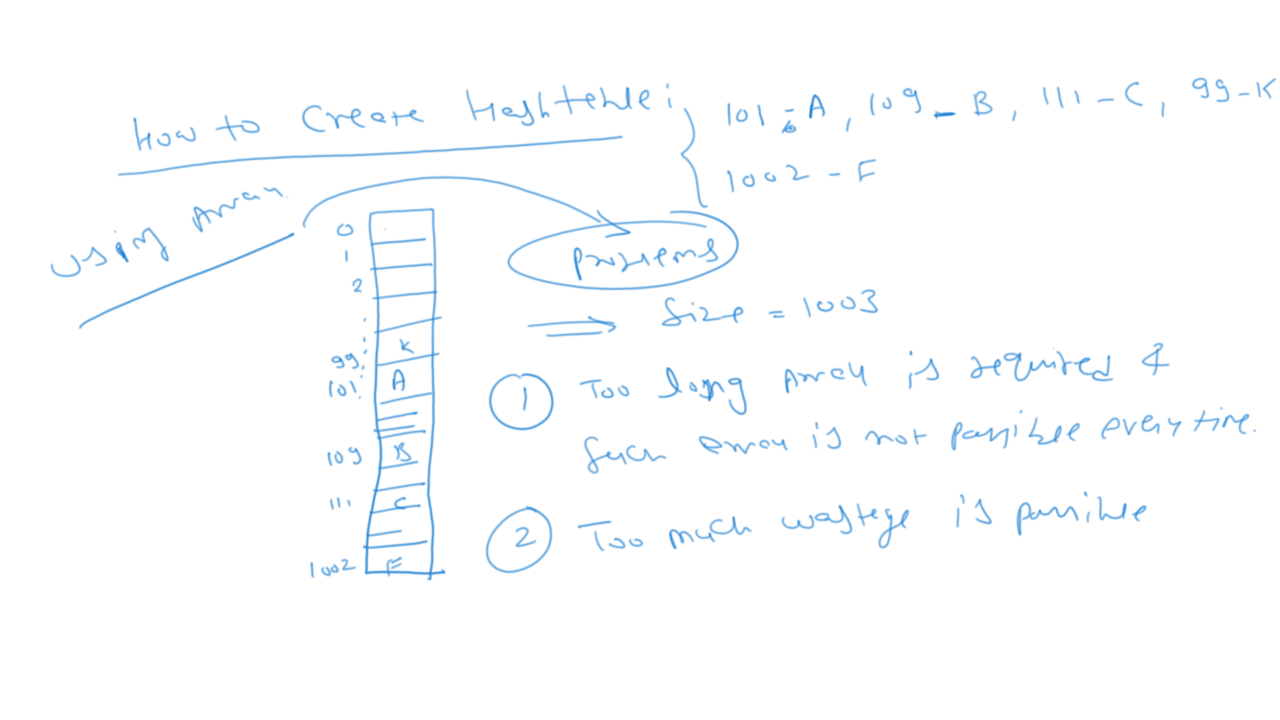 How to Create Hashtable:
101-A, 109-B, 111-C, 99-K
1002-F
Using Array
Problems
0
1
2
99 K
101 A
109 B
111 C
1002 F
Size = 1003
1 Too long Array is required &
Such array is not possible every time.
2 Too much wastage is possible